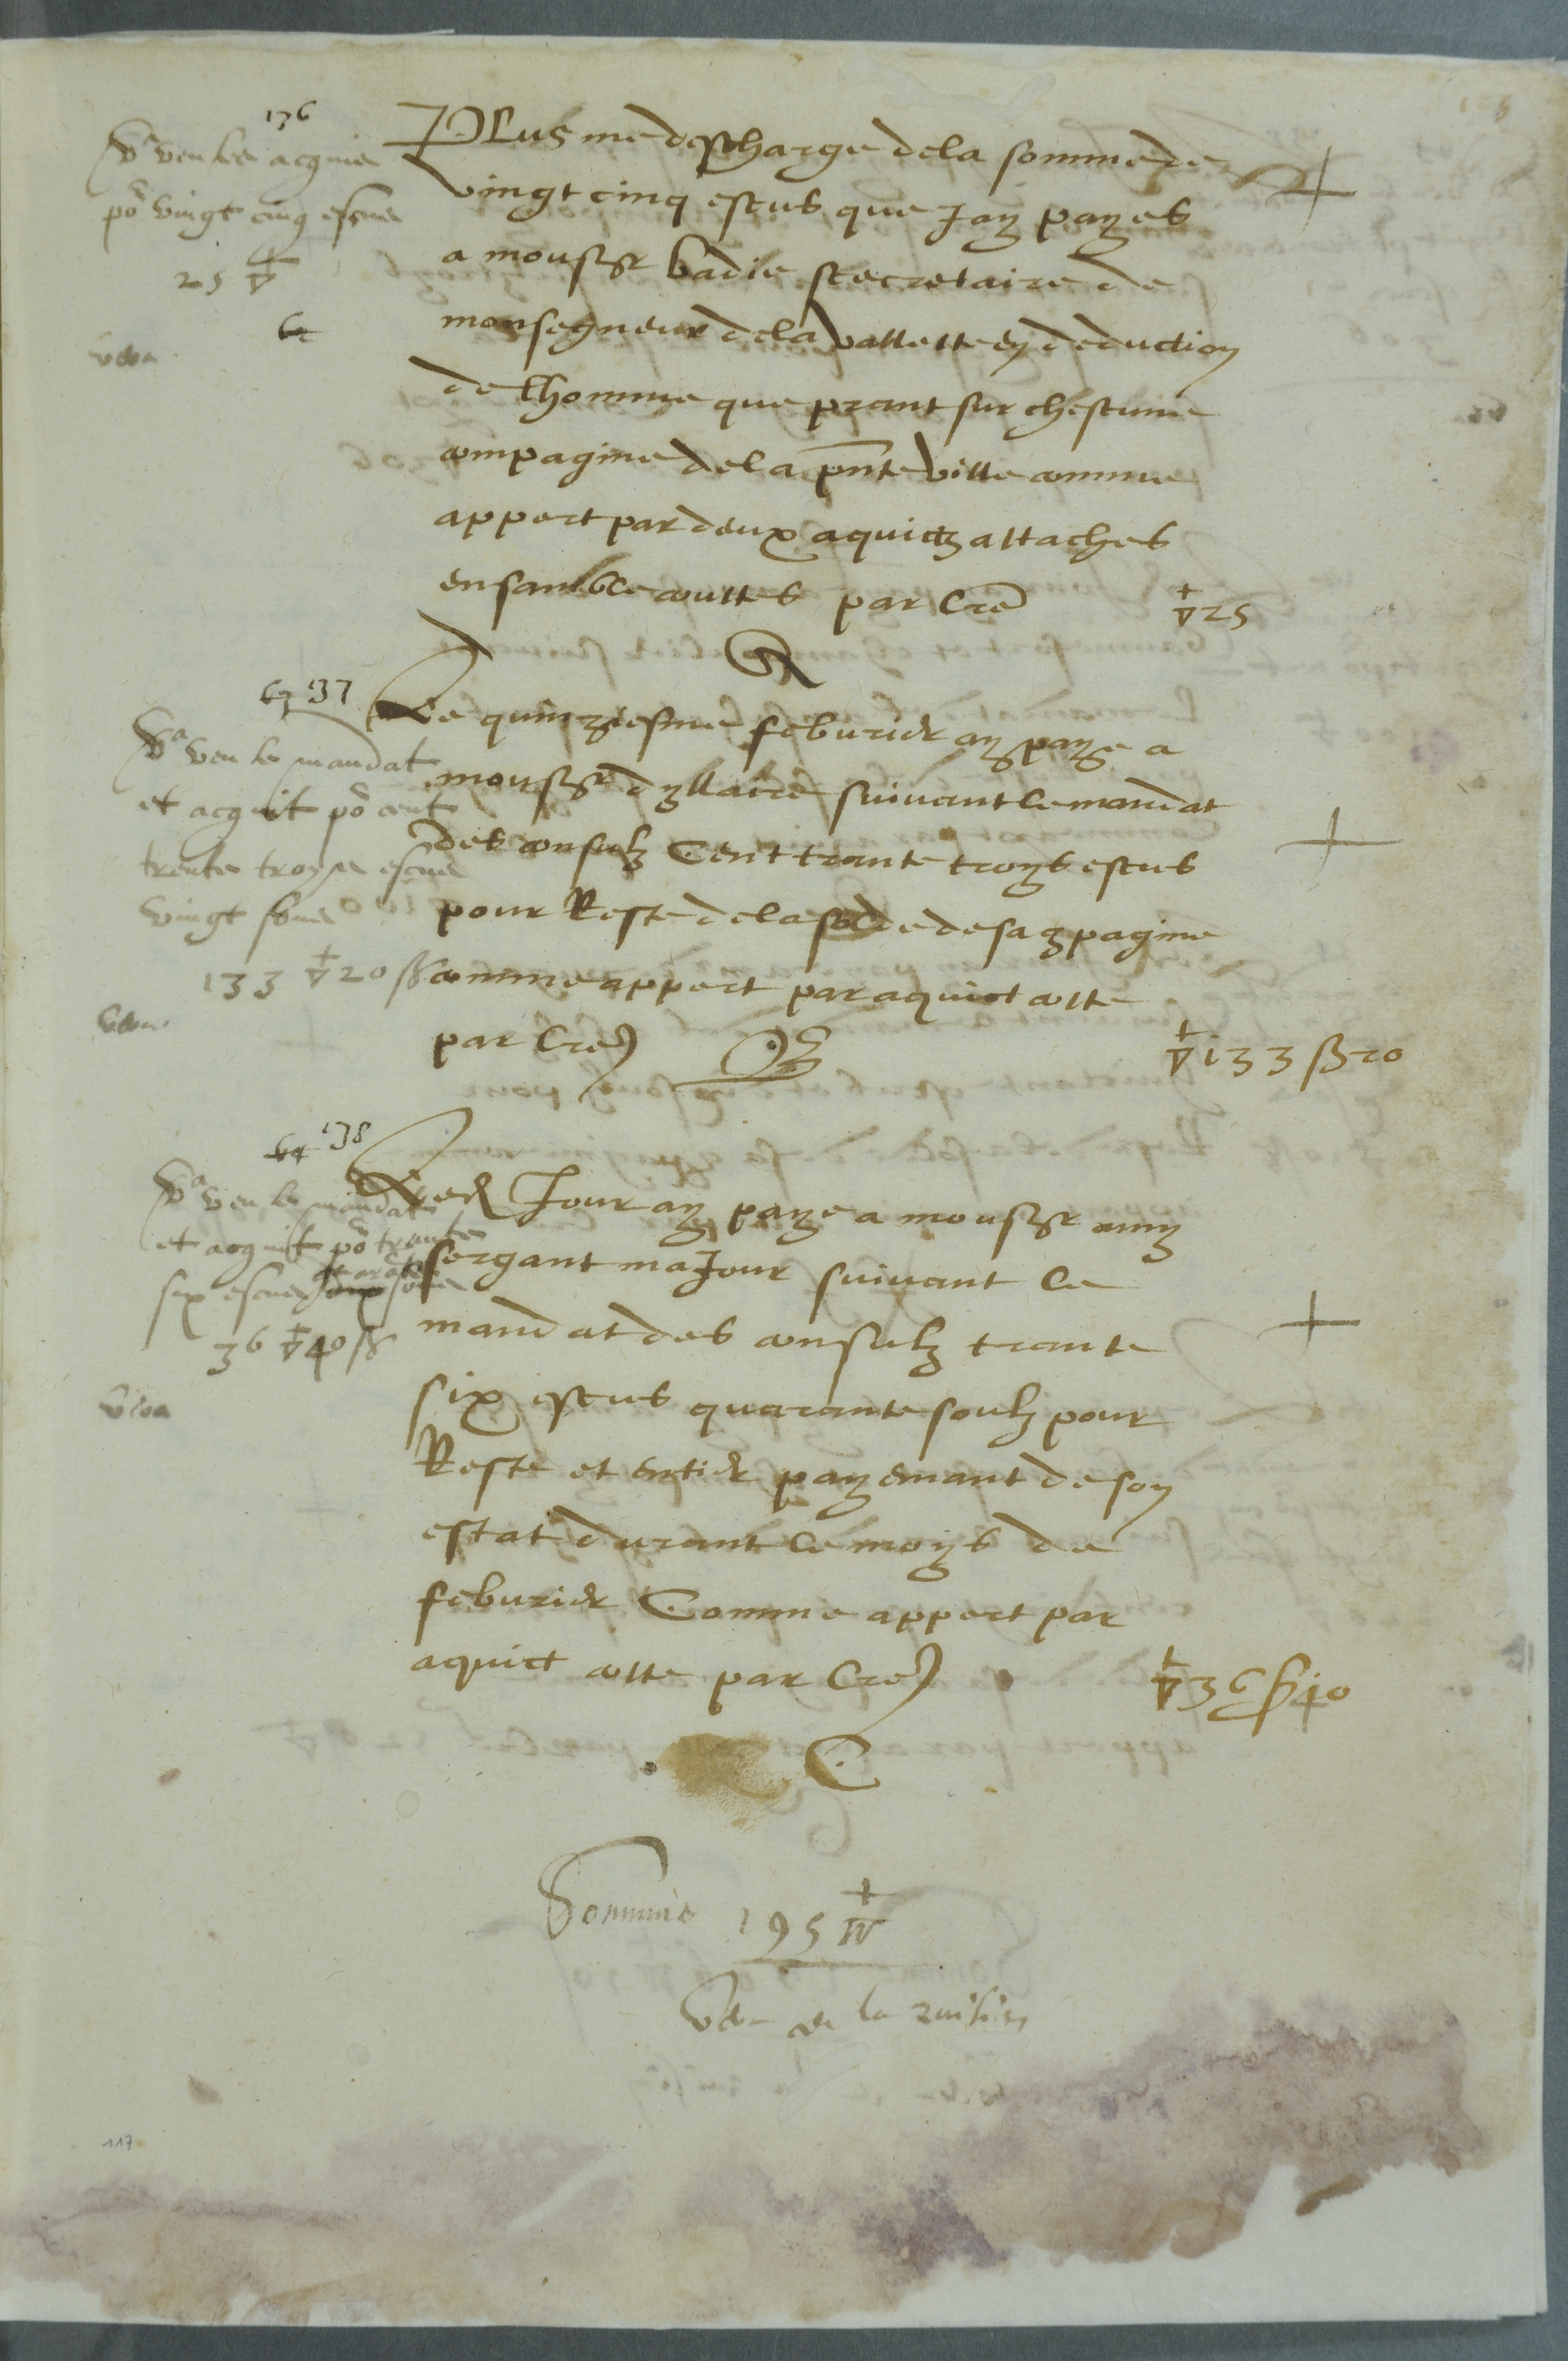 136
Va veu les acquis
po vingt cinq escus
25 ▽
PLus me descharge de la somme de
vingt cinq escus que Jay payes
a monsr badie secretaire de
monsegneur de la vallette en deduction
de lhomme que prant sur chescune
compagine de la pnte ville comme
appert par deux aquictz attaches
ensamble cottes par lre ▽ 25
R
63 137
Va veu le mandat
et acquit po cent
trente troys escus
vingt sous
133 ▽ 20 ß
Le quinziesme feburier ay paye a
monsr dyllaire suivant le mandat
des consulz Cent trante troys escus
pour Reste de la solde de sa 9pagine
comme appert par aquict cotte
par lre B ▽ 133 ß 20
64 138
Va veu le mandat
et acquit po trante
six escus quarate sous
36 ▽ 40 ß
Led Jour ay paye a monsr
sergant maJour suivant le
mandat des consulz trante
six escus quarante soulz pour
Reste et entier payemant de son
estat durant le moys de
feburier Comme appert par
aquict cotte par lre ▽ 36 ß 40
C
Somme 195 ▽
de la
117